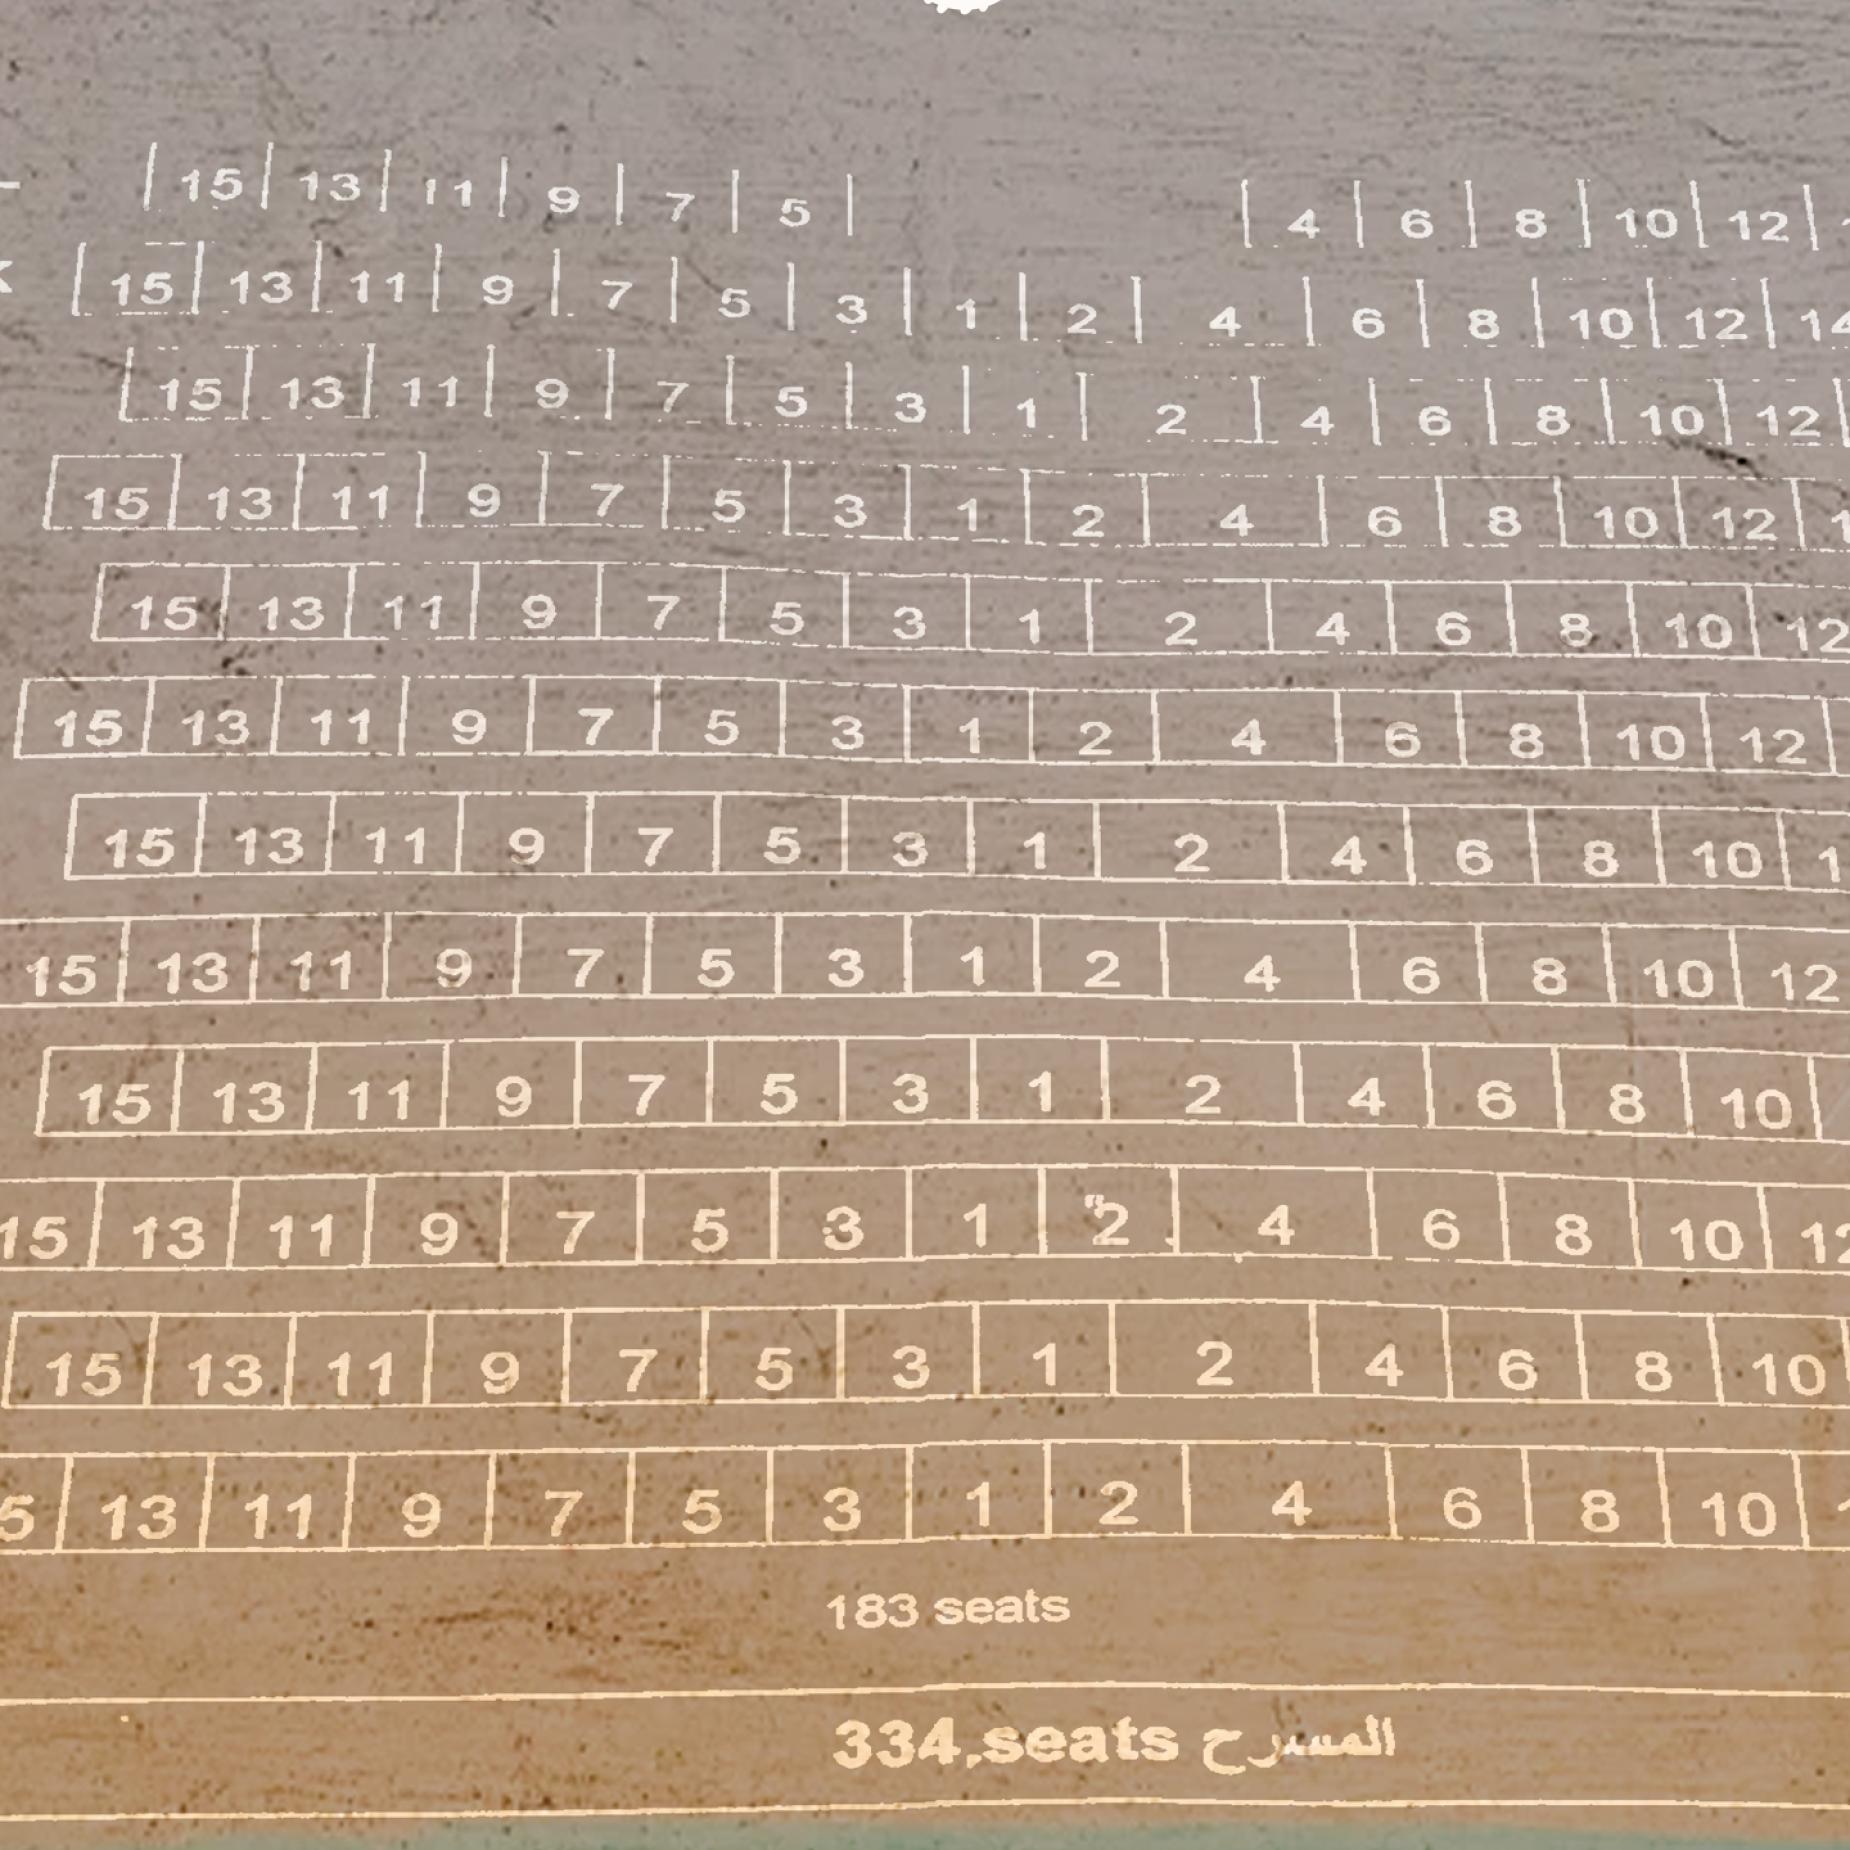 15 13 11 9 7 5 4 6 8 10 12
15 13 11 9 7 5 3 1 2 4 6 8 10 12 14
15 13 11 9 7 5 3 1 2 4 6 8 10 12
15 13 11 9 7 5 3 1 2 4 6 8 10 12
15 13 11 9 7 5 3 1 2 4 6 8 10 12
15 13 11 9 7 5 3 1 2 4 6 8 10 12
15 13 11 9 7 5 3 1 2 4 6 8 10
15 13 11 9 7 5 3 1 2 4 6 8 10 12
15 13 11 9 7 5 3 1 2 4 6 8 10
15 13 11 9 7 5 3 1 2 4 6 8 10 12
15 13 11 9 7 5 3 1 2 4 6 8 10
13 11 9 7 5 3 1 2 4 6 8 10
183 seats
334,seats المسرح